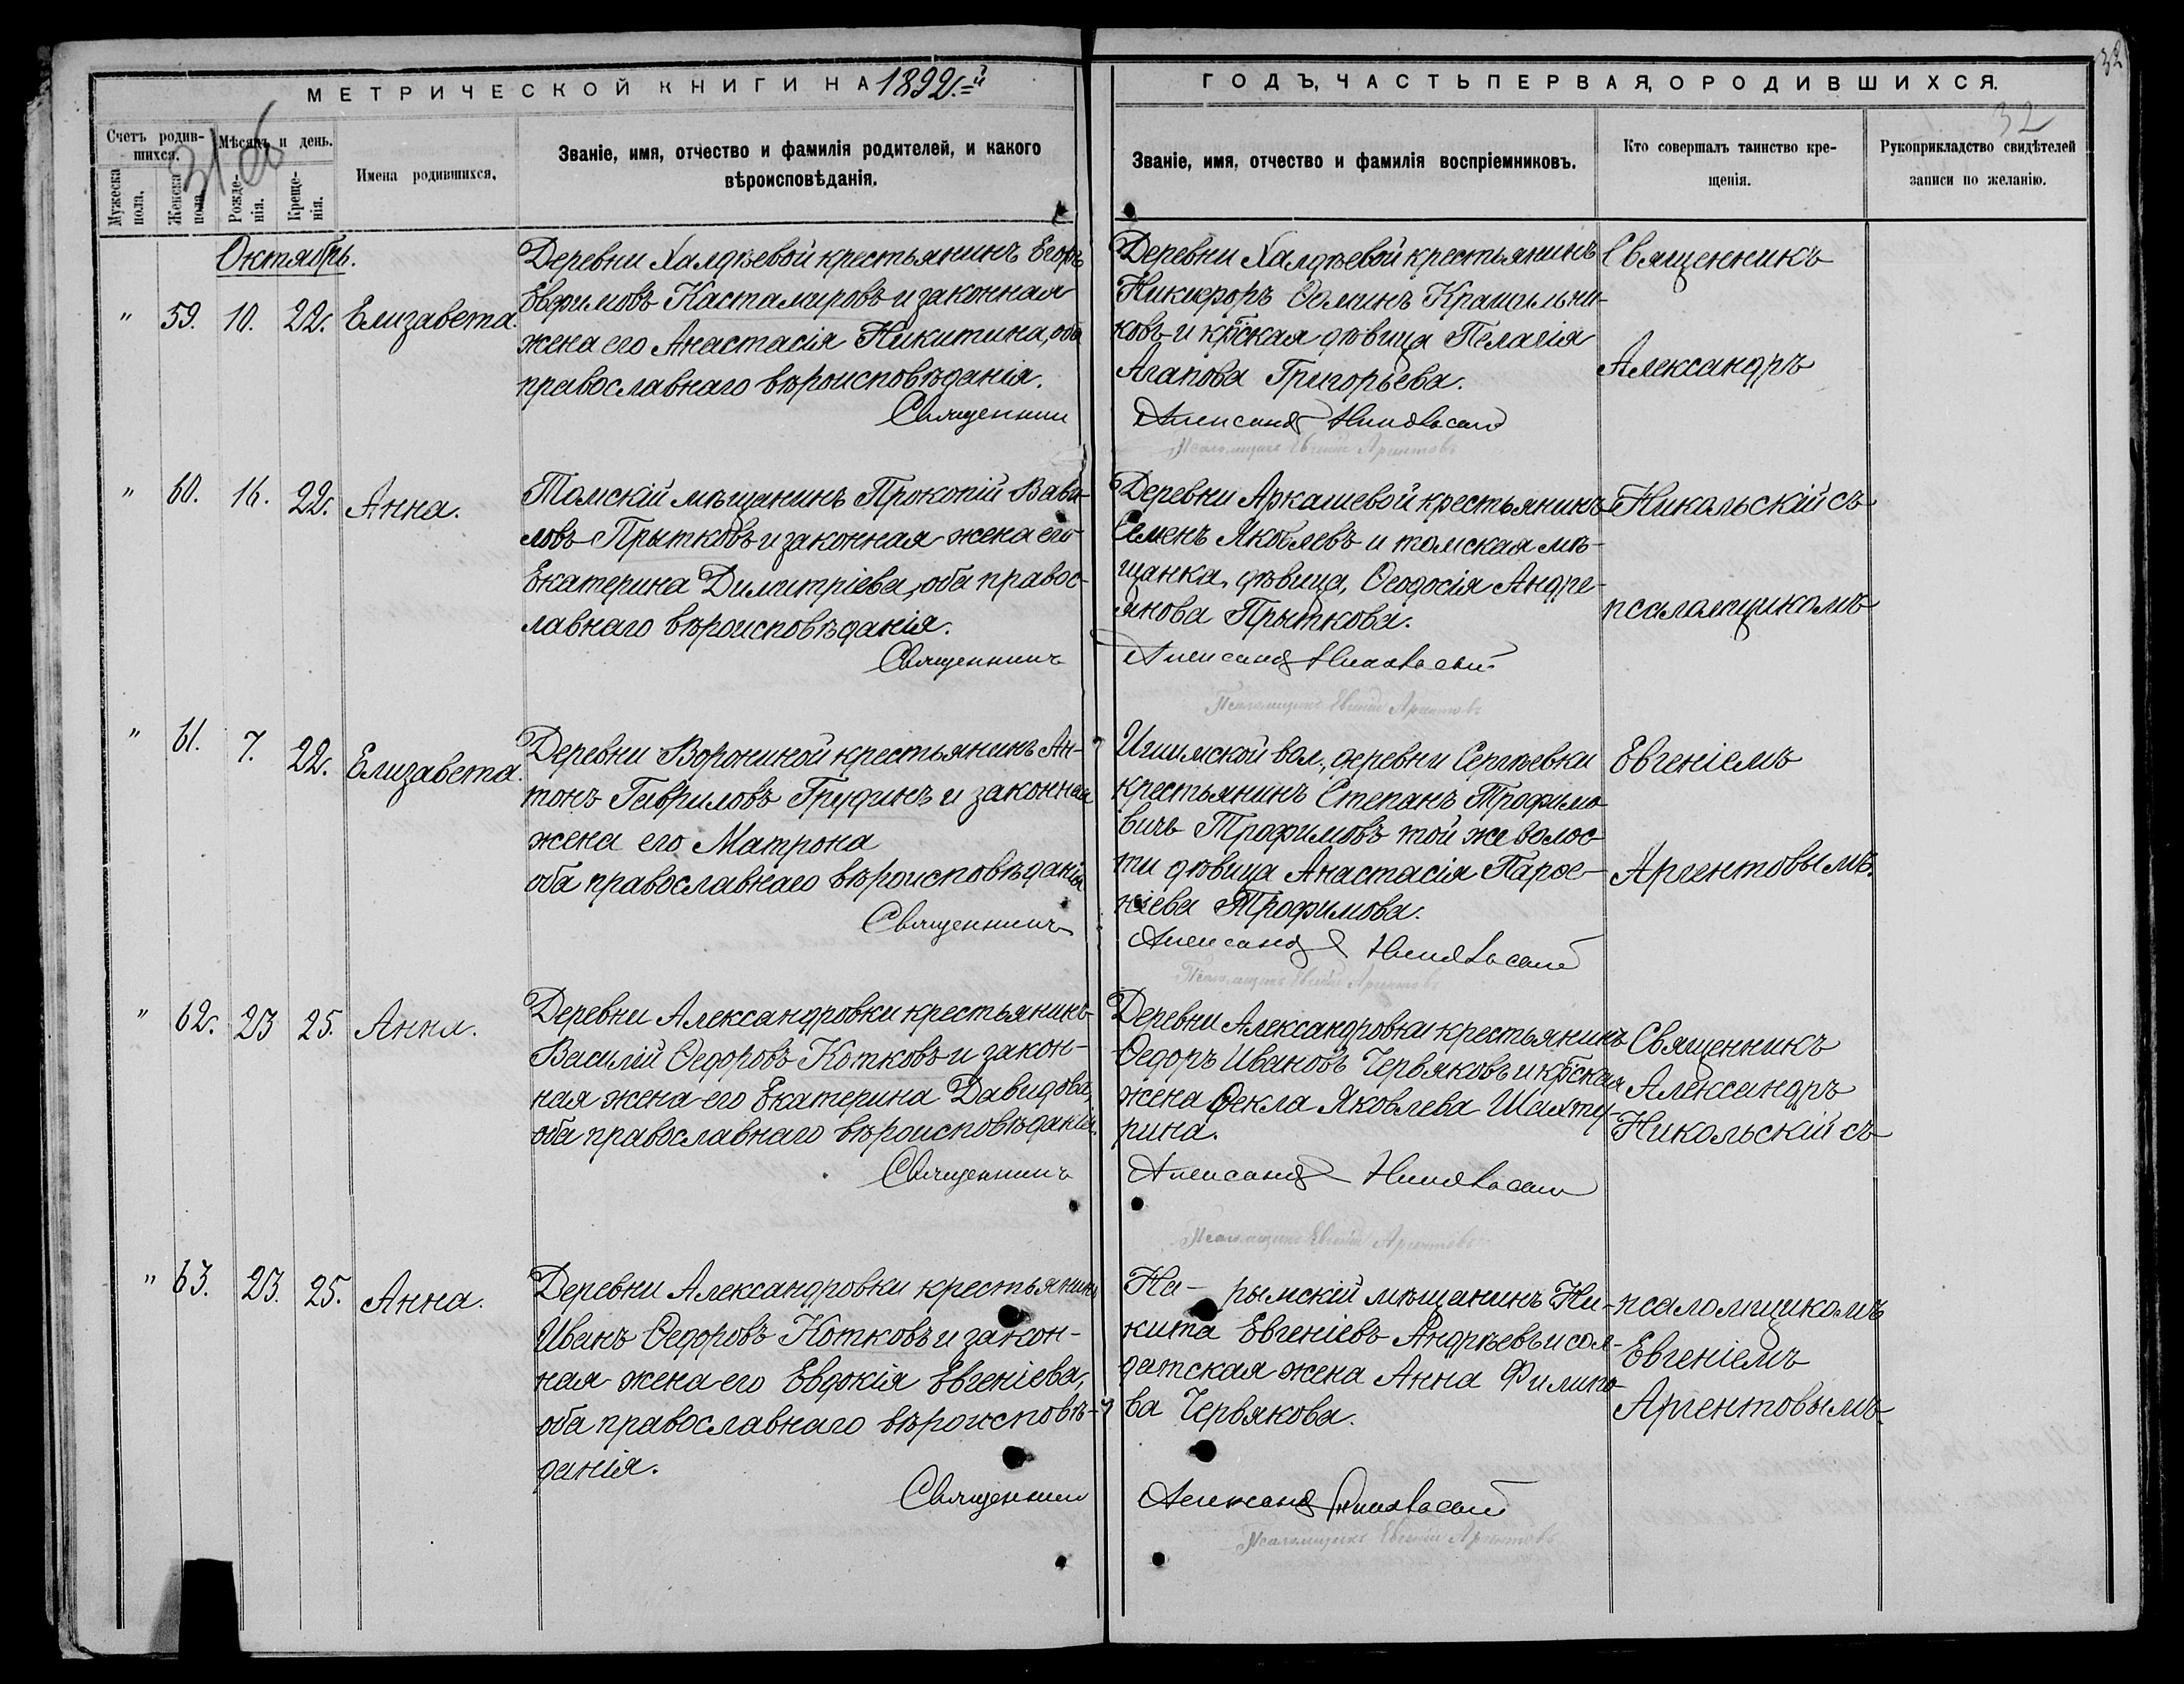 МЕТРИЧЕСКОЙ КНИГИ НА 1892.й
ГОДЪ, ЧАСТЬ ПЕРВАЯ, О РОДИВШИХСЯ.
32
32
31 об
Счетъ родив-
шихся.
Мѣсяцъ и день.
Мужеска пола.
Женска пола.
Рожде-
нія.
Креще-
нія.
Имена родившихся.
Званіе, имя, отчество и фамилія родителей, и какого
вѣроисповѣданія.
Званіе, имя, отчество и фамилія воспріемниковъ.
Кто совершалъ таинство кре-
щенія.
Рукоприкладство свидѣтелей
записи по желанію.
Октябрь.
" 59. 10. 22. Елизавета.
Деревни Халдѣевой крестьянинъ Егоръ
Евфимовъ Кастамировъ и законная
жена его Анастасія Никитина, оба
православнаго вѣроисповѣданія.
Священник
Деревни Халдѣевой крестьянинъ
Никифоръ Ѳоминъ Крашальни-
ковъ и кр̃ская дѣвица Пелагія
Агапова Григорьева.
Александръ Никольскій
Псаломщикъ Евгеній Аргентовъ
Священникъ
Александръ
" 60. 16. 22. Анна.
Томскій мѣщанинъ Прокопій Вави-
ловъ Прытковъ и законная жена его
Екатерина Димитріева, оба правос-
лавнаго вѣроисповѣданія.
Священникъ
Деревни Аркашевой крестьянинъ
Семенъ Яковлевъ и томская мѣ-
щанка, дѣвица, Ѳеодосія Андре-
янова Прыткова.
Александръ Никольскій
Псаломщикъ Евгеній Аргентовъ
Никольскій съ
псаломщикомъ
" 61. 7. 22. Елизавета.
Деревни Ворониной крестьянинъ Ан-
тонъ Гавриловъ Грудинъ и законная
жена его Матрона
оба православнаго вѣроисповѣданія
Священникъ
Ишимской вол., деревни Сергѣевки
крестьянинъ Степанъ Трофимо-
вичъ Трофимовъ той же волос-
ти дѣвица Анастасія Парѳе-
ніева Трофимова.
Александръ Никольскій
Псаломщикъ Евгеній Аргентовъ
Евгеніемъ
Аргентовымъ.
" 62. 23 25. Анна.
Деревни Александровки крестьянинъ
Василій Ѳедоровъ Котковъ и закон-
ная жена его Екатерина Давидова,
оба православнаго вѣроисповѣданія.
Священникъ
Деревни Александровки крестьянинъ
Ѳедоръ Ивановъ Червяковъ и кр̃ская
жена Ѳекла Яковлева Шахту-
рина.
Александръ Никольскій
Псаломщикъ Евгеній Аргентовъ
Священникъ
Александръ
Никольскій съ
" 63. 23. 25. Анна.
Деревни Александровки крестьянинъ
Иванъ Ѳедоровъ Котковъ и закон-
ная жена его Евдокія Евгеніева,
оба православнаго вѣроисповѣ-
данія.
Священник
На- рымскій мѣщанинъ Ни-
кита Евгеніевъ Андрѣевъ и сол-
датская жена Анна Филипо-
ва Червякова.
Александръ Никольскій
Псаломщикъ Евгеній Аргентовъ
псаломщикомъ
Евгеніемъ
Аргентовымъ.